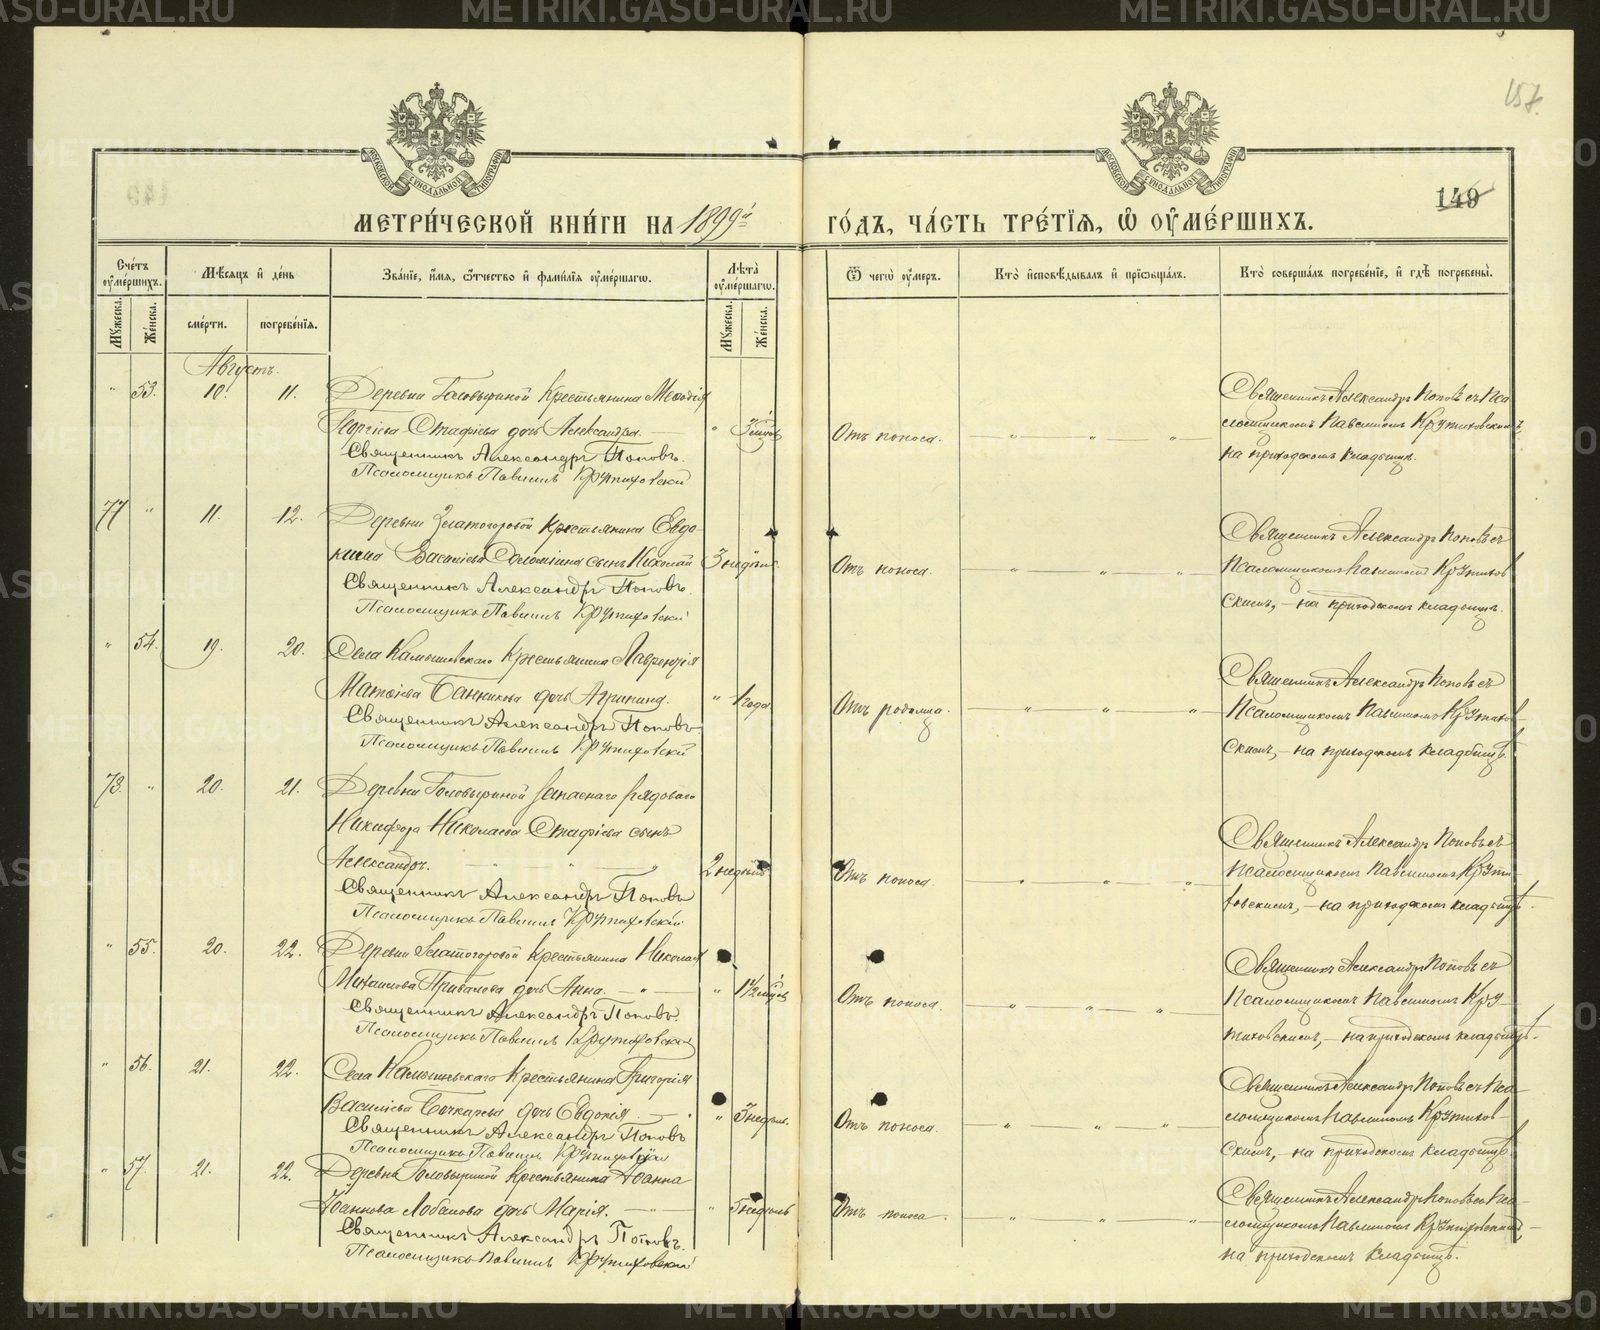 METRIKI.GASO-URAL.RU
157.
149
МОСКОВСКОЙ СѴНОДАЛЬНОЙ ТИПОГРАФІИ
МОСКОВСКОЙ СѴНОДАЛЬНОЙ ТИПОГРАФІИ
МЕТРИ́ЧЕСКОЙ КНИ́ГИ НА 1899й ГО́ДЪ, ЧА́СТЬ ТРЕ́ТІЯ, Ѽ ОУ҆МЕ́РШИХЪ.
Счетъ оумершихъ.
Мѣсяцъ и день
Званіе, имя, отчество и фамилія оумершагω.
Лѣта оумершагω.
Ѿ чегω оумеръ.
Кто исповѣдывалъ и пріωбщалъ.
Кто совершалъ погребеніе, и гдѣ погребены.
Мужеска.
Женска.
смерти.
погребенія.
Мужеска.
Женска.
Августъ.
" 53. 10. 11. Деревни Головыриной Крестьянина Меѳодія
Георгіева Стафіева дочь Александра. —
Священникъ Александръ Поповъ.
Псаломщикъ Павлинъ Крутиховскій
Отъ поноса. — " — " — "
Священникъ Александръ Поповъ съ Пса
ломщикомъ Павлиномъ Крутиховскимъ
на приходскомъ кладбищѣ.
77 " 11. 12. Деревни Златогоровой Крестьянина Евдо-
кима Васильева Соломеина сынъ Николай 3 недѣль.
Священникъ Александръ Поповъ.
Псаломщикъ Павлинъ Крутиховскій
Отъ поноса. — " — " — "
Священникъ Александръ Поповъ съ
Псаломщикомъ Павлиномъ Крутихов
скимъ, — на приходскомъ кладбищѣ.
" 54. 19. 20. Села Камышевскаго Крестьянина Лаврентія
Матѳіева Банникова дочь Агрипина. " 1 года
Священникъ Александръ Поповъ
Псаломщикъ Павлинъ Крутиховскій
Отъ родимца. — " — " — "
Священникъ Александръ Поповъ съ
Псаломщикомъ Павлиномъ Крутихов-
скимъ, — на приходскомъ кладбищѣ.
78. " 20. 21. Деревни Головыриной Запаснаго рядоваго
Никифора Николаева Стафіева сынъ
Александръ. — " — " 2 недѣль
Священникъ Александръ Поповъ
Псаломщикъ Павлинъ Крутиховскій
Отъ поноса. — " — " — "
Священникъ Александръ Поповъ съ
Псаломщикомъ Павлиномъ Крути-
ховскимъ, — на приходскомъ кладбищѣ.
" 55. 20. 22. Деревни Златогоровой Крестьянина Николая
Михаилова Привалова дочь Анна. — " — " 1 1/2 мѣсяц
Священникъ Александръ Поповъ.
Псаломщикъ Павлинъ Крутиховскій
Отъ поноса. — " — " — "
Священникъ Александръ Поповъ съ
Псаломщикомъ Павлиномъ Кру-
тиховскимъ, — на приходскомъ кладбищѣ.
" 56. 21. 22. Села Камышевскаго Крестьянина Григорія
Васильева Бочкарева дочь Евдокія. — " 3 недѣль.
Священникъ Александръ Поповъ
Псаломщикъ Павлинъ Крутиховскій
Отъ поноса. — " — " — "
Священникъ Александръ Поповъ съ Пса-
ломщикомъ Павлиномъ Крутихов-
скимъ, — на приходскомъ кладбищѣ.
" 57. 21. 22. Деревни Головыриной Крестьянина Іоанна
Іоаннова Лобанова дочь Марія. — " 5 недѣль
Священникъ Александръ Поповъ.
Псаломщикъ Павлинъ Крутиховскій
Отъ поноса. — " — " — "
Священникъ Александръ Поповъ съ Пса-
ломщикомъ Павлиномъ Крутиховскимъ, —
на приходскомъ кладбищѣ.
METRIKI.GASO-URAL.RU